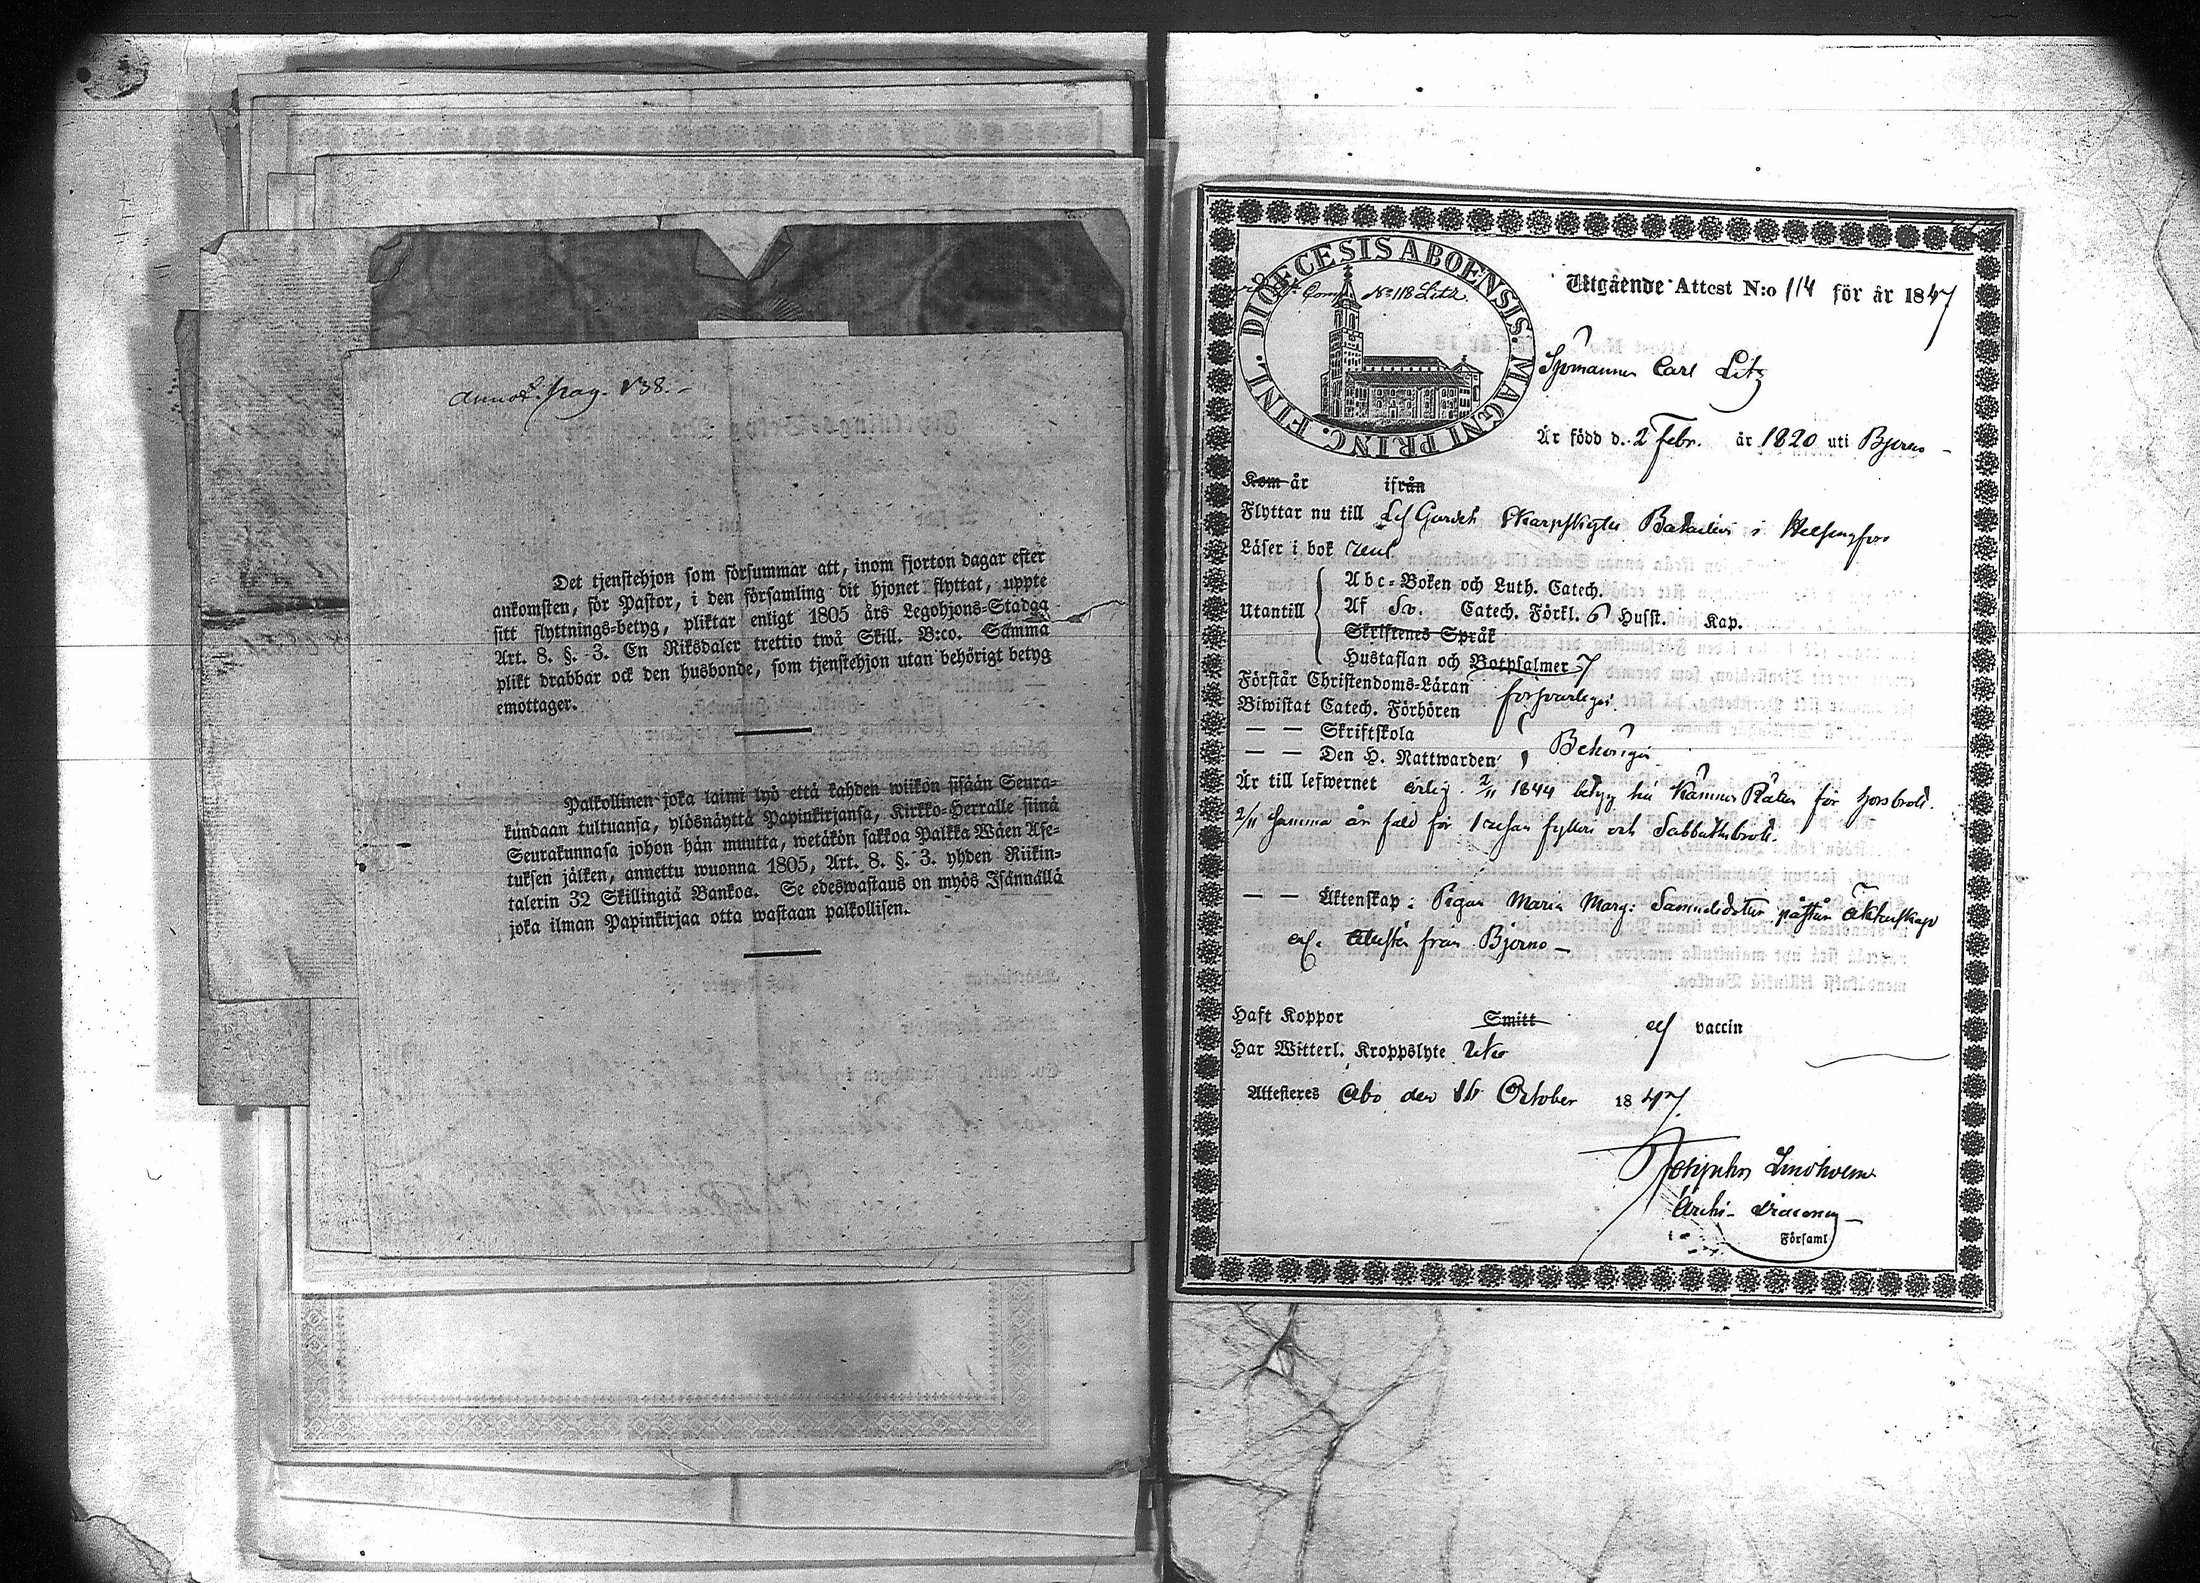 annot. pag. 138.-
Det tjenstehjon som försummar att, inom fjorton dagar efter
ankomsten, för Pastor, i den församling dit hjonet flyttat, uppte
sitt flyttnings-betyg, pliktar enligt 1805 års Legohjons-Stadga
Art. 8. §. 3. En Riksdaler trettio twå Skill. B:co. Samma
plikt drabbar ock den husbonde, som tjenstehjon utan behörigt betyg
emottager.
Palkollinen joka laimi lyö että kahden wiikon sisään Seura-
kundaan tultuansa, ylösnäyttä Papinkirjansa, Kirkko-Herralle siinä
Seurakunnasa johon hän muutta, wetäkön sakkoa Palkka Wäen Ase-
tuksen jälken, annettu wuonna 1805, Art. 8. §. 3. yhden Riikin-
talerin 32 Skillingiä Bankoa. Se edeswastaus on myös Isännällä
joka ilman Papinkirjaa otta wastaan palkollisen.
DIOECESIS ABOENSIS. MAGNI PRINC. FINL.
Comp N:o 118 Litz.
Utgående Attest N:o 114 för år 1847
Sjömannen Carl Litz
Är född d. 2 Febr. år 1820 uti Bjerno -
Kom år ifrån
Flyttar nu till Lif Gardets Skarpskytte Bataillon i Helsingfors
Läser i bok rent
Utantill
Abc-Boken och Luth. Catech.
Af Sv. Catech. Förkl. 6 Husst. Kap.
Skriftenes Språk
Hustaflan och Botpsalmer 7
Förstår Christendoms-Läran försvarligen
Biwistat Catech. Förhören
— — Skriftskola
— — Den H. Nattwarden Behörigen
Är till lefwernet ärlig. 2/11 1844 bötfälld Kämners Rätten för
2/11 samma år fäld för resan fylleri och Sabbathsbrott.
— — Äktenskap: Pigan Maria Marg: Samuelsdotter påstår Äktenskap
enl. attest från Bjerno —
Haft Koppor Smitt af vaccin
Har Witterl. Kroppslyte
Attesteres Åbo den October 1847
Lindholm
Archi-Diaconus
i Församl.